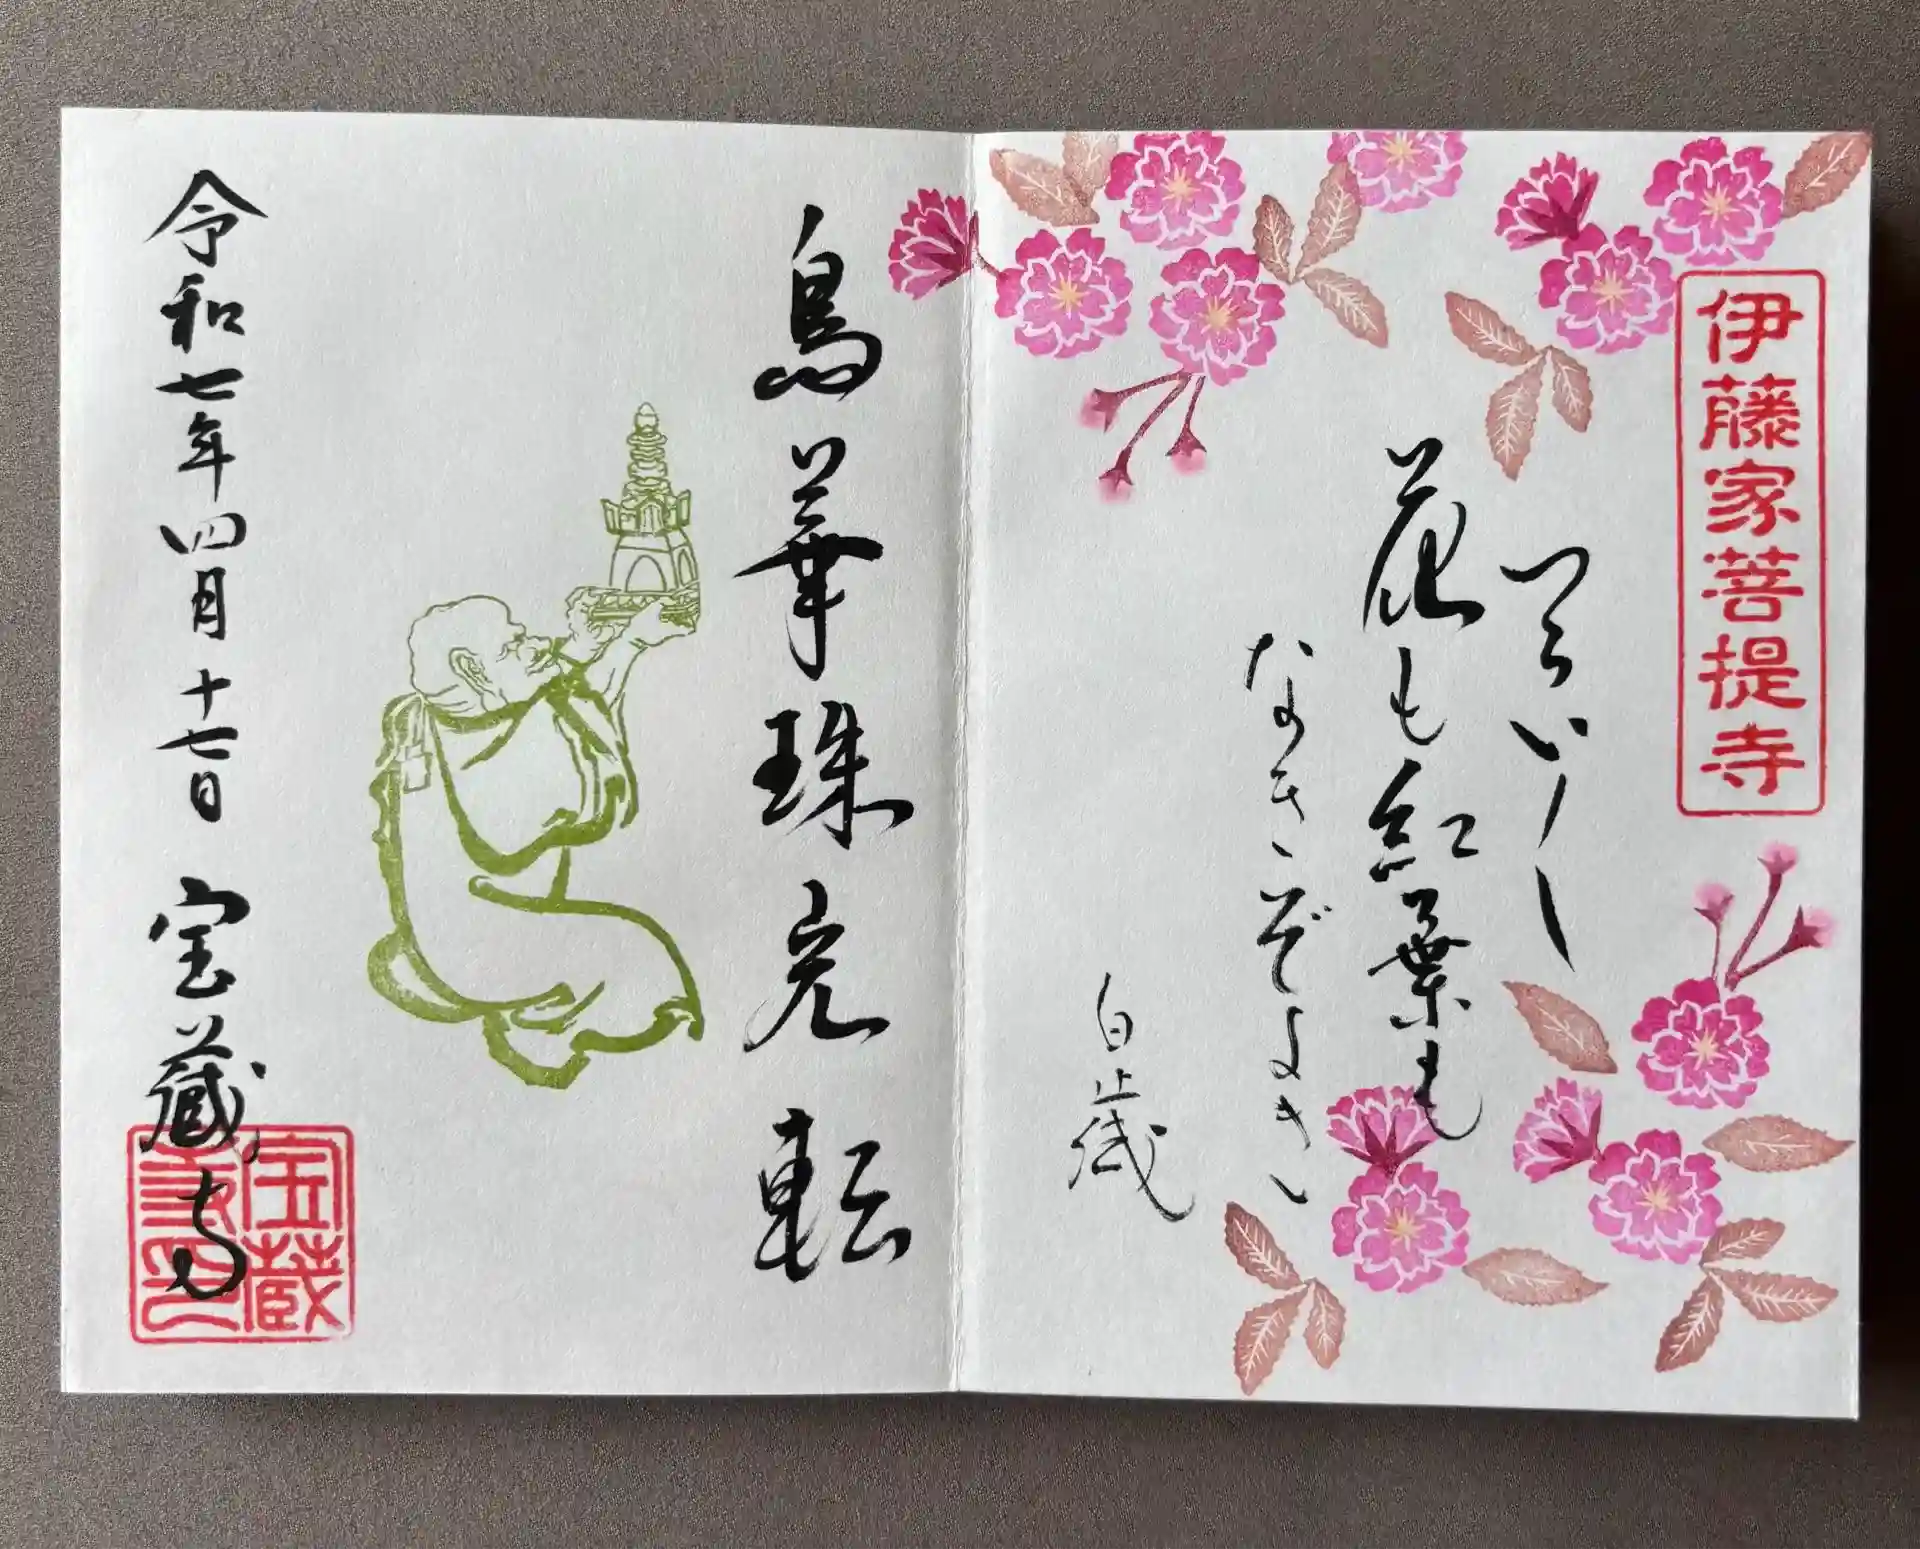 伊藤家菩提寺
花も紅葉も
なきぞよき
白歳
鳥華珠 転
令和七年四月十七日 宝蔵寺
宝蔵寺印